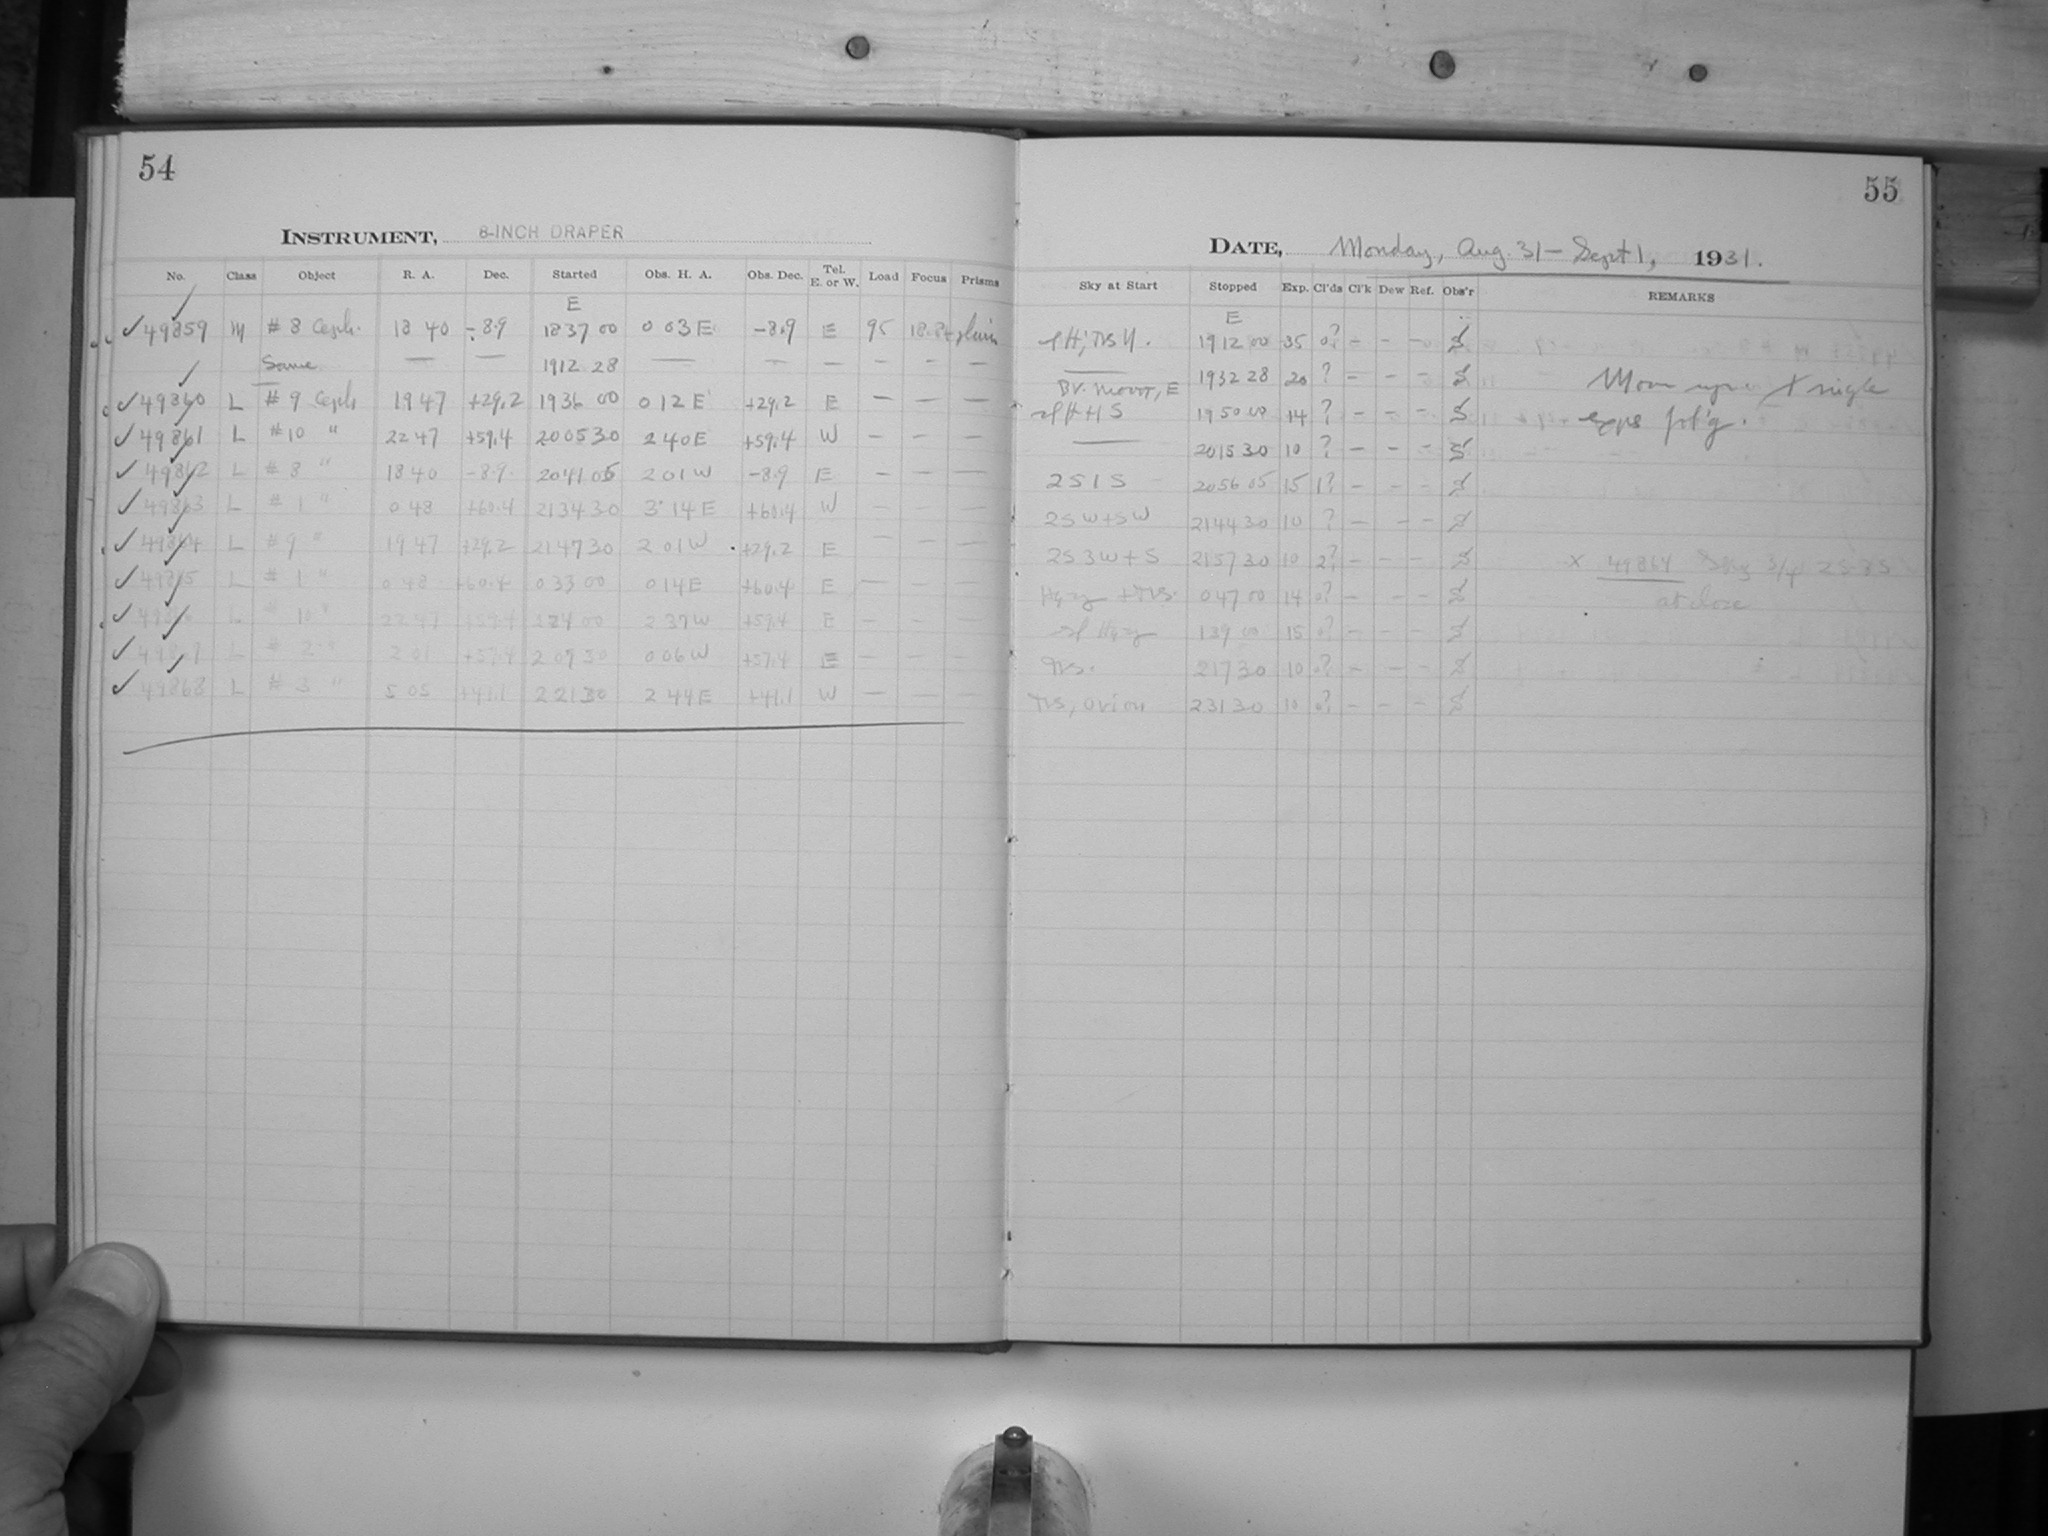 54
INSTRUMENT, 8-INCH DRAPER
No. Class Object R. A. Dec. Started Obs. H. A. Obs. Dec. Tel. E. or W. Load Focus Prisms
E
✓ 49859 M # 8 Ceph. 18 40 -8.9 18 37 00 0 03 E -8.9 E 95
Same — — 19 12 28 — — — — — —
✓ 49860 L # 9 Ceph 19 47 +29.2 19 36 00 0 12 E +29.2 E — — —
✓ 49861 L # 10 " 22 47 +59.4 20 05 30 2 40 E +59.4 W — — —
✓ 49862 L # 8 " 18 40 -8.9 20 41 05 2 01 W -8.9 E — — —
✓ 49863 L # 1 " 0 48 +60.4 21 34 30 3 14 E +60.4 W — — —
✓ 49864 L # 9 " 19 47 +29.2 21 47 30 2 01 W +29.2 E — — —
✓ 49865 L # 1 " 0 48 +60.4 0 33 00 0 14 E +60.4 E — — —
✓ 49866 L # 10 " 22 47 +59.4 1 24 00 2 37 W +59.4 E — — —
✓ 49867 L # 2 " 2 01 +57.4 2 07 30 0 06 W +57.4 E — — —
✓ 49868 L # 3 " 5 05 +41.1 2 21 30 2 44 E +41.1 W — — —
55
DATE, Monday, Aug. 31 – Sept 1, 1931.
Sky at Start Stopped Exp. Cl'ds Cl'k Dew Ref. Obs'r REMARKS
E
19 12 00 35 0? – – –
— 19 32 28 20 ? – – – Moon up
Br. Moon, E 19 50 00 14 ? – – – exps
— 20 15 30 10 ? – – –
2 S 1 S 20 56 05 15 1? – – –
2 S W + S W 21 44 30 10 ? – – –
2 S 3 W + S 21 57 30 10 2? – – – x 49864 Sky
Hazy 0 47 00 14 0? – – – at close
Hazy 1 39 00 15 0? – – –
2 17 30 10 0? – – –
Orion 2 31 30 10 0? – – –